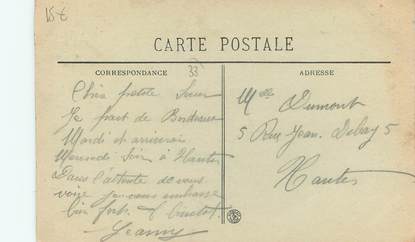 15€
CARTE POSTALE
CORRESPONDANCE
33
ADRESSE
Chère petite Sœur
Je part de Bordeaux
Mardi et arriverai
Mercredi soir à Nantes
Dans l'attente de vous
voir je vous embrasse
bien fort.
Jeanny
Mlle Dumont
5 Rue Jean. Debay 5
Nantes